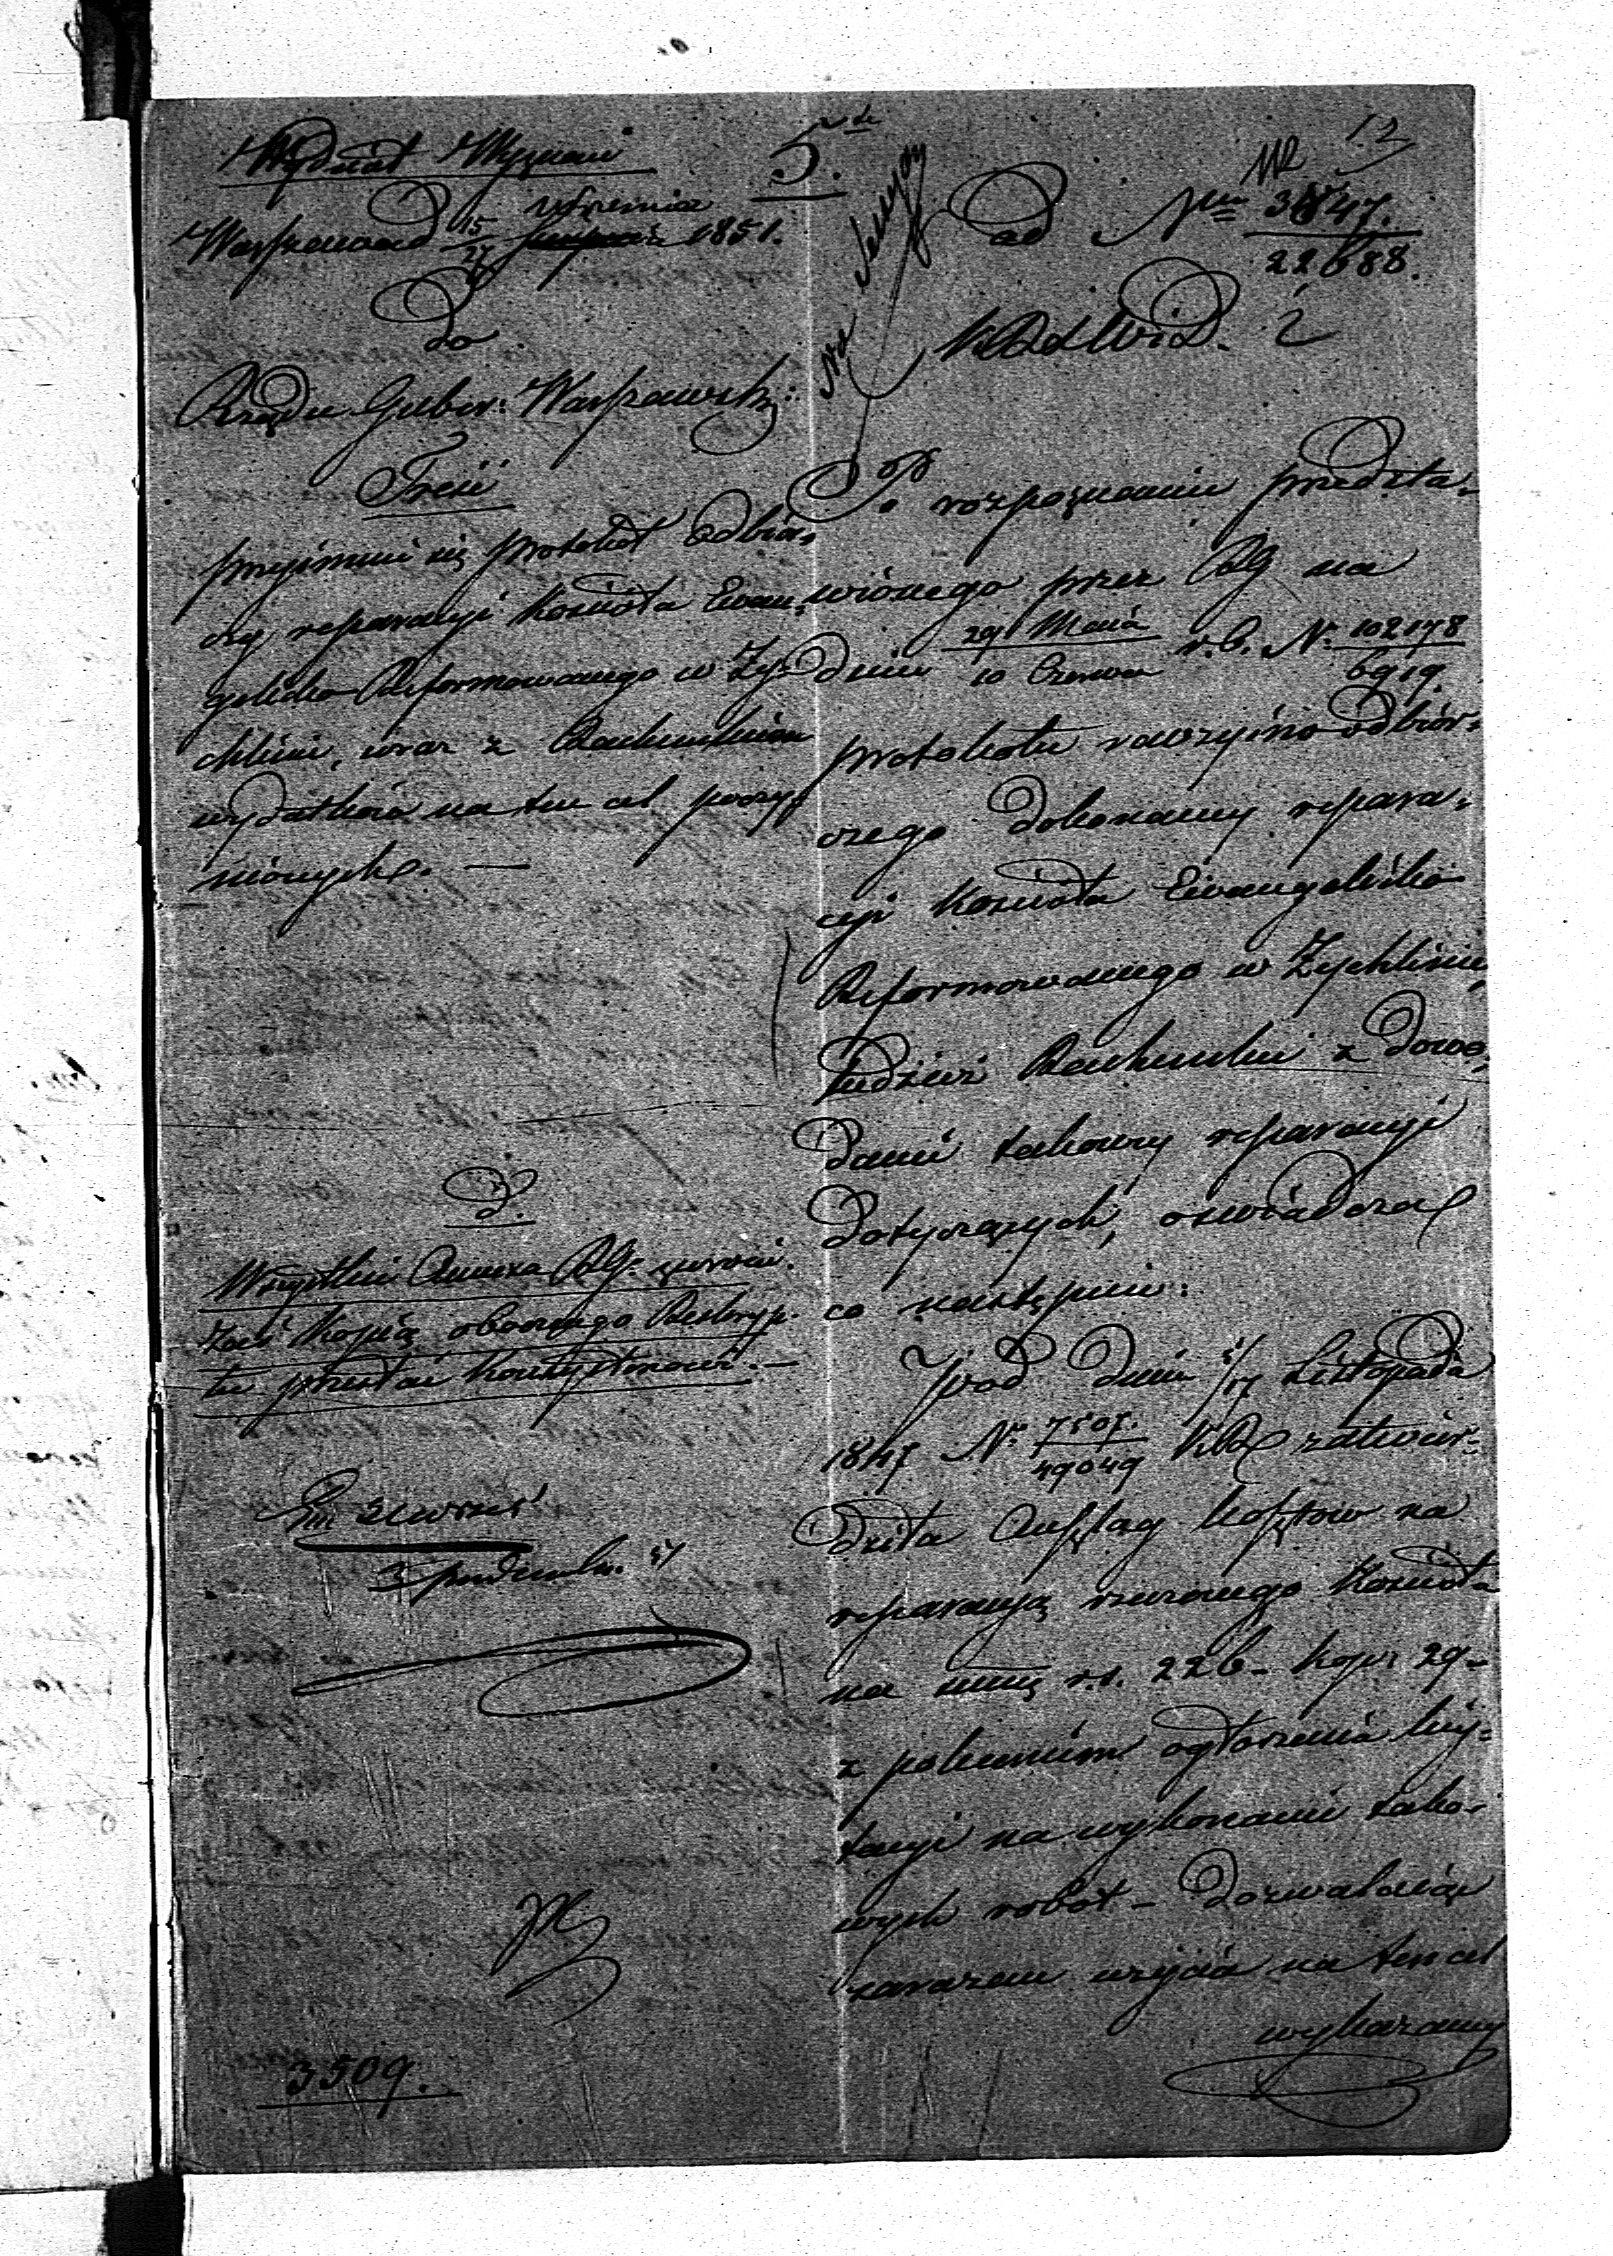 Wydział Wyznań
Warszawa d 15/27 Września 1851.
do
Rządu Guber: Warszawsk:
Treść
przyimuie się protokół Odbior-
czy reparacyi Kościoła Ewan-
gelicko Reformowanego w Zy-
chlinie, wraz z Rachunkiem
wydatków na ten cel poczy-
nionych. —
D.
Wszystkie Annexa RG. zwrócić.
zaś Kopią obecnego Reskryp-
tu przesłać Konsystorzowi. —
3 października 51
3509.
5.
13
ad Nru 3647.
22688.
KRSWiD.
Po rozpoznaniu przedsta-
wionego przez RG na
dniu 29 Maia / 10 Czerwca r.b. Nr 102178 / 6919
protokółu rewizyino odbior-
czego dokonanej repara-
cyi Kościoła Ewangelicko
Reformowanego w Zychlinie,
tudzież Rachunku z dowo-
dami takowey reparacyi
dotyczących, oświadcza
co następuie:
Pod dniem 5/17 Listopada
1847 Nr 7505. / 49049 KR zatwier-
dziła Anszlag kosztów na
reparacyą rzeczonego Kościoła
na summę r.s. 226 - kop. 29 -
z poleceniem ogłoszenia licy-
tacyi na wykonanie tako-
wych robót - dozwalaiąc
zarazem użycia na ten cel
wykazaney